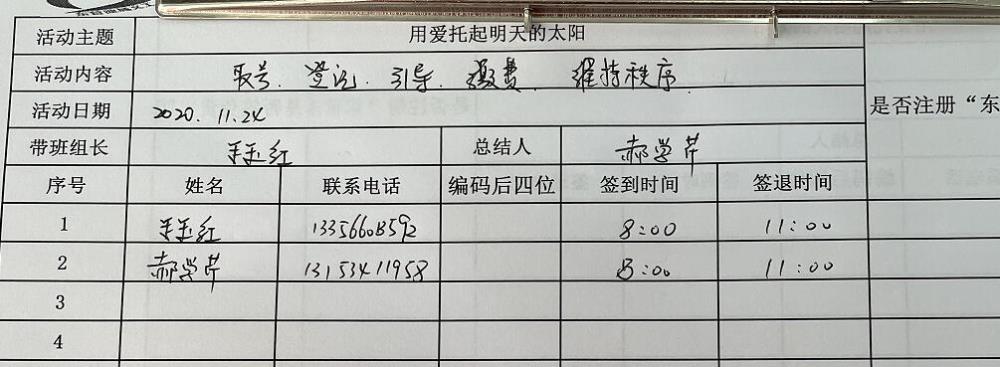 活动主题 用爱托起明天的太阳
活动内容 取号、登记、引导、缴费、维持秩序
活动日期 2020.11.24
是否注册“东
带班组长 玉红 总结人 郝学芹
序号 姓名 联系电话 编码后四位 签到时间 签退时间
1 玉红 13356608592 8:00 11:00
2 郝学芹 13153411958 8:00 11:00
3
4